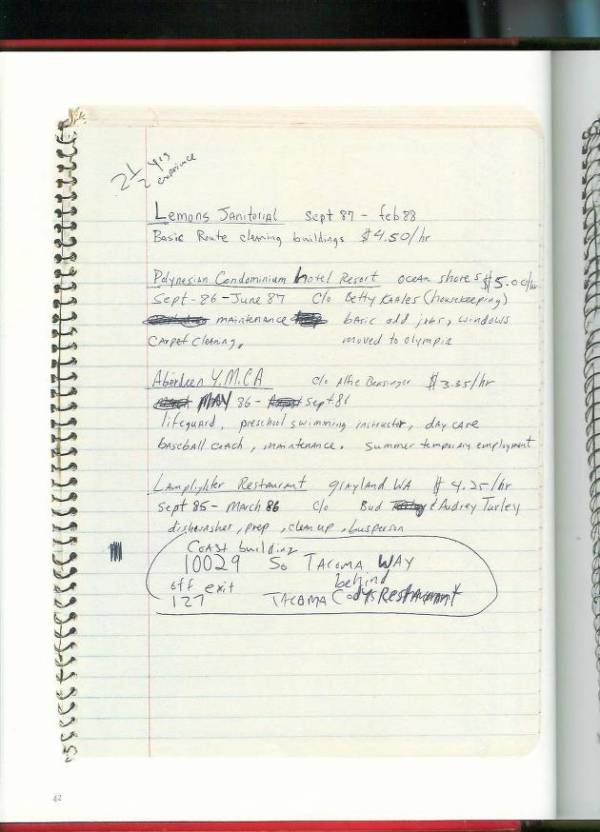 2 1/2 yrs
experience
Lemons Janitorial Sept 87 - feb 88
Basic Route cleaning buildings $4.50/hr
Polynesian Condominium Hotel Resort ocean shores $5.00/hr
Sept - 86 - June 87 c/o Betty Kaales (housekeeping)
maintenance basic odd jobs, windows
carpet cleaning. moved to olympia
Aberdeen Y.M.C.A c/o Alfie Bensinger $3.35/hr
MAY 86 - sept 86
lifeguard, preschool swimming instructor, day care
baseball coach, maintenance. Summer temporary employment
Lamplighter Restaurant grayland WA $4.25/hr
Sept 85 - March 86 c/o Bud & Audrey Turley
dishwasher, prep, clean up, busperson
COAST building
10029 So TACOMA WAY
off exit behind
127 TACOMA Codys Restaurant
62